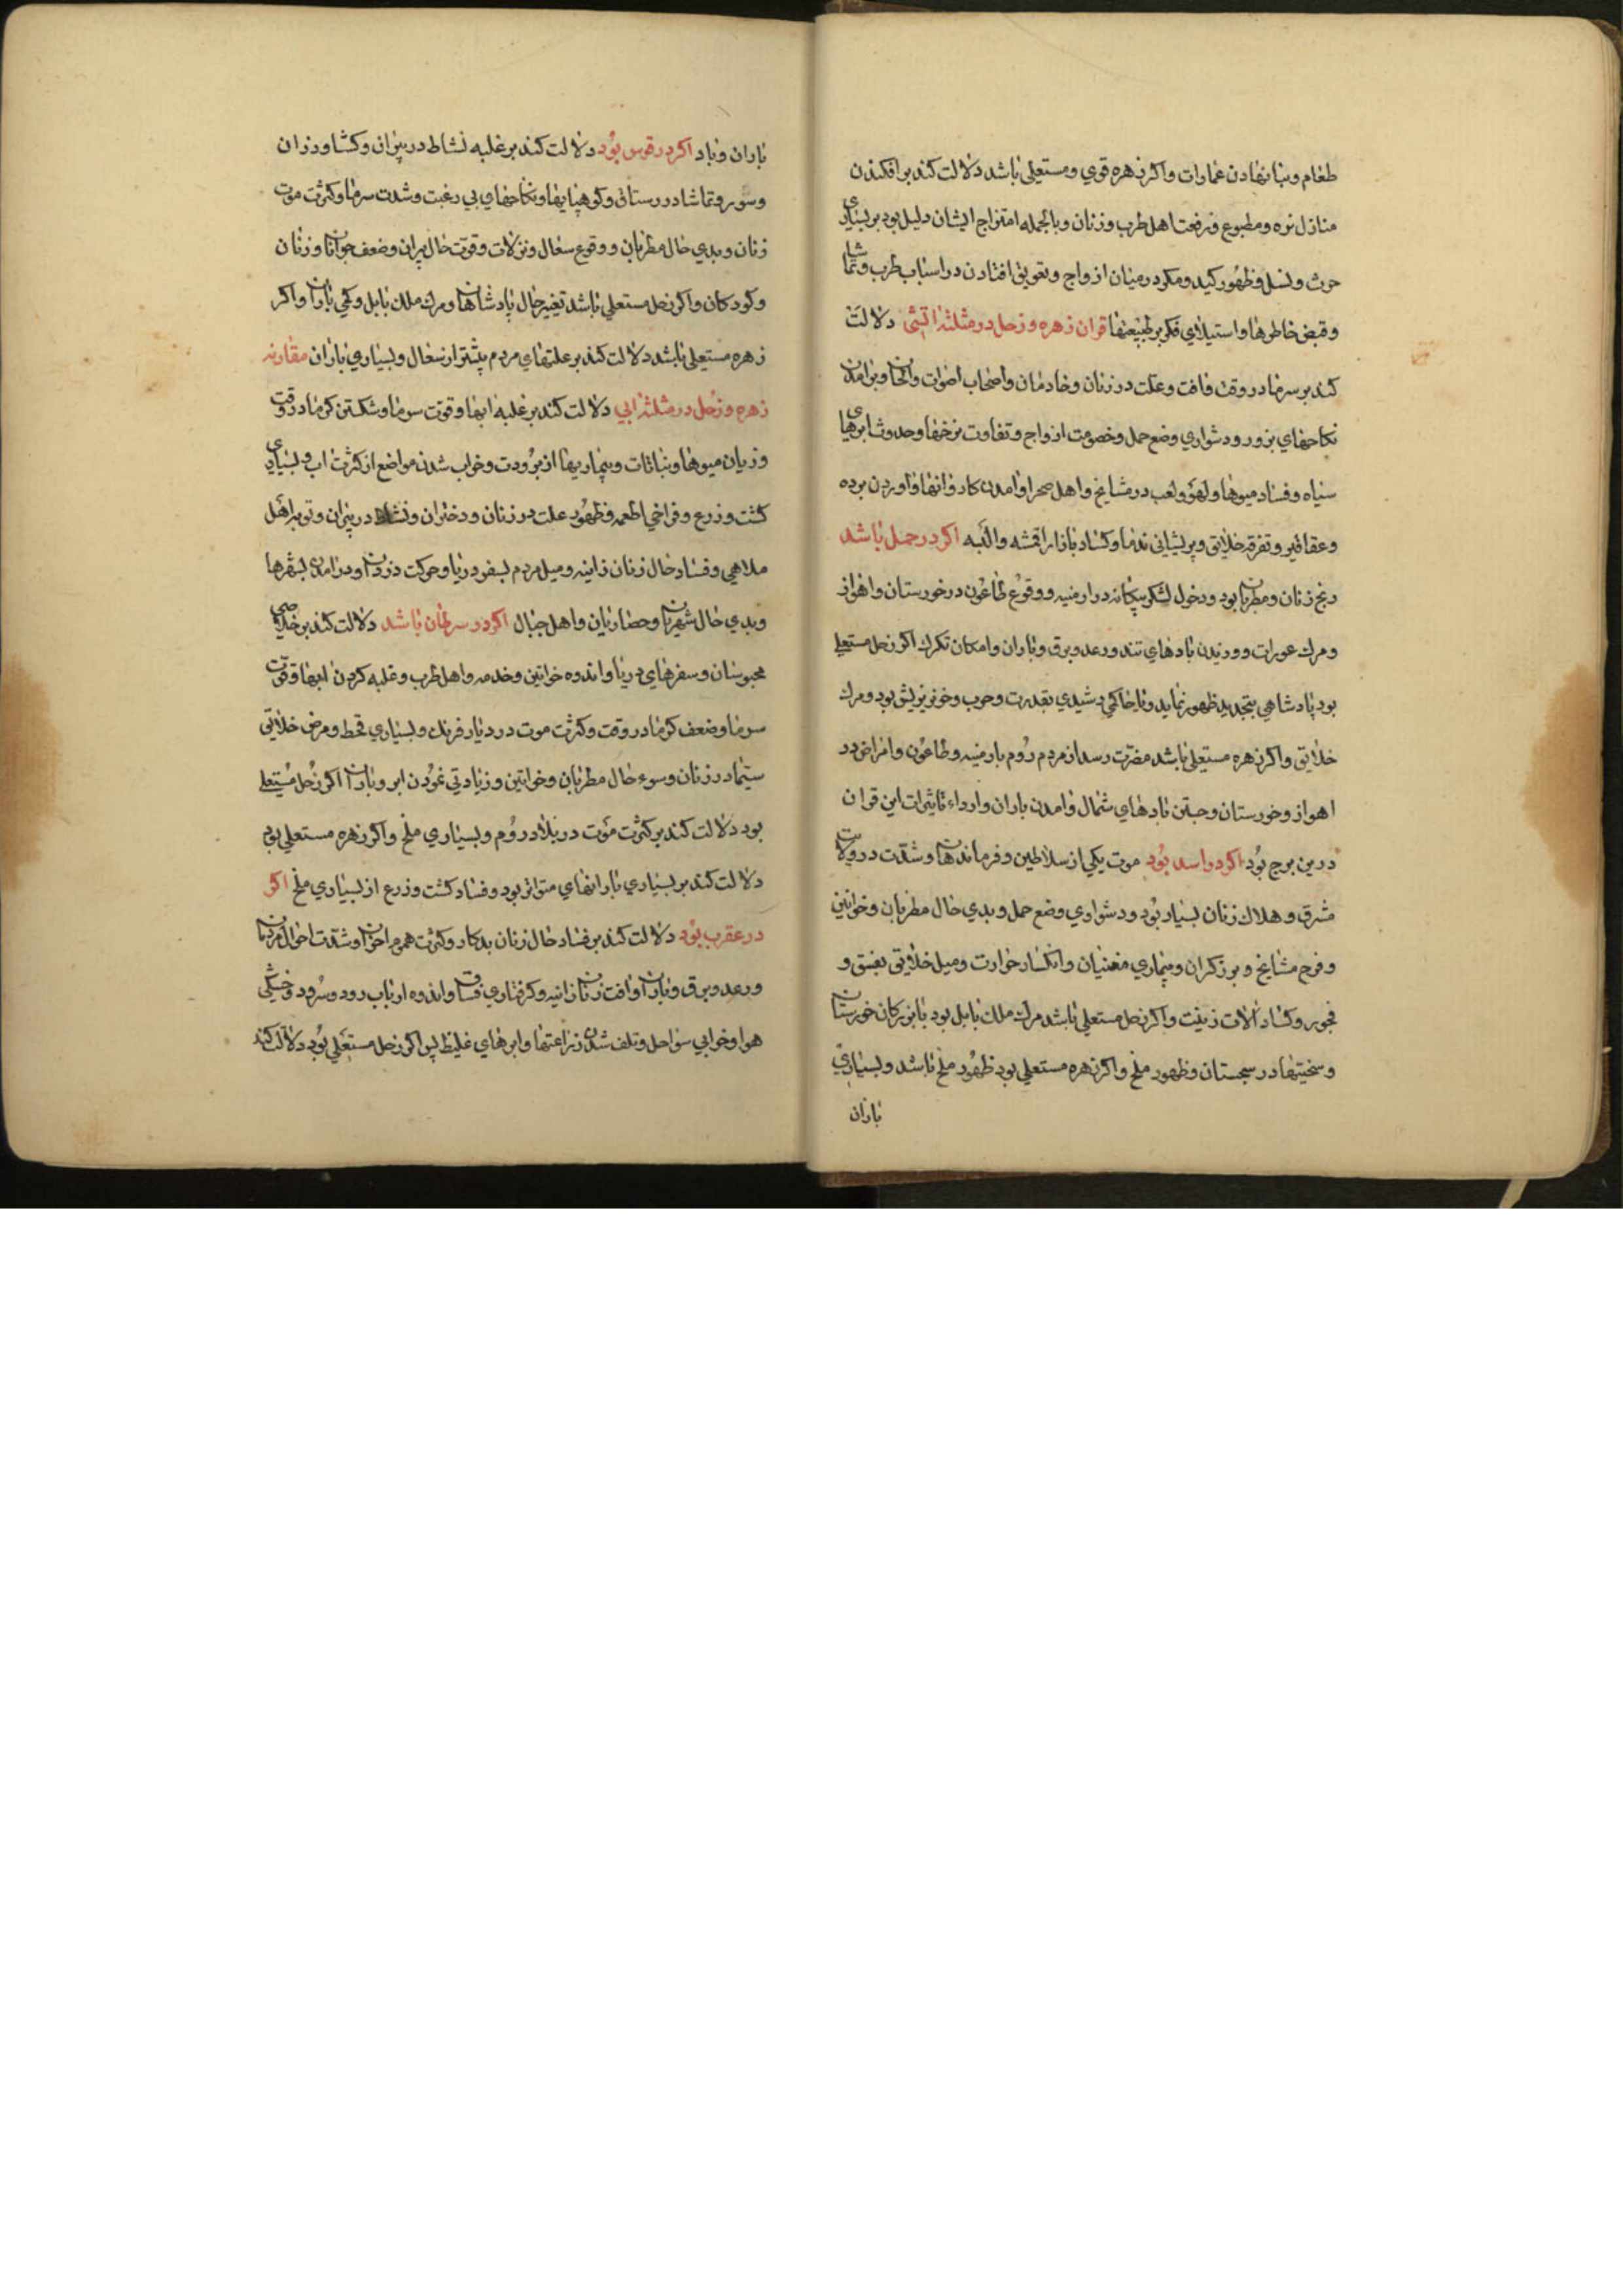 طعام و بنا نهادن عمارات و اکر زهره قوي و مستعلي باشد دلالت کند بر افکندن
منازل نزه و مطبوع و رفعت اهل طرب و زنان و بالجمله امتزاج ایشان دلیل بود بر بسیاری
حرث و نسل و ظهور کید و مکر در میان ازواج و تعویق افتادن در اسباب طرب و تماشا
و قبض خاطرها و استیلاي فکر بر طبیعتها قران زهره و زحل در مثلثه اتشی دلالت
کند بر سرما در وقت و افت و علت در زنان و خادمان و اصحاب اصوات و الحان و برامدن
نکاحهاي بزور و دشواري وضع حمل و خصومت ازواج و تفاوت نرخها و حدوث ابرهای
سیاه و فساد میوها و لهو و لعب در مشایخ و اهل صحرا و امدن کاروانها و اوردن برده
و عقاقیر و تفرقه خلایق و پریشانی ندما و کساد بازار اقمشه و البسه اکر در حمل باشد
رنج زنان و مطربان بود و دخول لشکر بیکانه در ارمنیه و وقوع طاعون در خورستان و اهواز
و مرك عورات و وزیدن بادهاي تند و رعد و برق و باران و امکان تکرك اکر زحل مستعلے
بود پادشاهي بتجدید ظهور نماید و یا حاکمي و شدي بقدرت و حرب و خونریزیش بود و مرك
خلایق و اکر زهره مستعلي باشد مضرت رسد از مردم روم بارمنیه و طاعون و امراض در
اهواز و خورستان و جستن بادهاي شمال و امدن باران و ارداء تاثیرات این قران
درین برج بود اکر در اسد بود موت یکي از سلاطین و فرماندهان و شدت در ولایت
شرق و هلاك زنان بسیار بود و دشواري وضع حمل و بدي حال مطربان و خواتین
و فرح مشایخ و برزکران و بیماري مغنیان و انکسار حرارت و میل خلایق بفسق و
فجور و کساد الات زینت و اکر زحل مستعلي باشد مرك ملك بابل بود یا بزرکان خورستان
و سختیها در سجستان و ظهور ملخ و اکر زهره مستعلي بود ظهور ملخ باشد و بسیاري
باران
باران و باد اکر در قوس بود دلالت کند بر غلبه نشاط در پیران و کشاورزان
و سور و تماشا در رستاق و کوهپایها و نکاحهاي بي رغبت و شدت سرما و کثرت موت
زنان و بدي حال مطربان و وقوع سعال و نزلات و قوت حال پیران و ضعف جوانان و زنان
و کودکان و اکر زحل مستعلي باشد تغییر حال پادشاهان و مرك ملك بابل و کمي باران و اکر
زهره مستعلي باشد دلالت کند بر علتهاي مردم بیشتر از سعال و بسیاري باران مقارنه
زهره و زحل در مثلثه ابي دلالت کند بر غلبه ابها و قوت سرما و شکستن کرما در وقت
و زیان میوها و نباتات و بیماریها از برودت و خراب شدن مواضع از کثرت اب و بسیاری
کشت و زرع و فراخي اطعمه و ظهور علت در زنان و دختران و نشاط در پیران و توبه اهل
ملاهي و فساد حال زنان زانیه و میل مردم بسفر دریا و حرکت دزدان و درامدن بشهرها
و بدي حال شهریان و حضاریان و اهل جبال اکر در سرطان باشد دلالت کند بر خلاصي
محبوسان و سفرهاي دریا و اندوه خواتین و خدمه و اهل طرب و غلبه کردن ابها و قوت
سرما و ضعف کرما در وقت و کثرت موت در دیار فرنك و بسیاري قحط و مرض خلایق
سیما در زنان و سوء حال مطربان و خواتین و زیادتي نمودن ابر و باران اکر زحل مستعلے
بود دلالت کند بر کثرت موت در بلاد روم و بسیاري ملخ و اکر زهره مستعلي بود
دلالت کند بر بسیاري بارانهاي متواتر بود و فساد کشت و زرع از بسیاري ملخ اکر
در عقرب بود دلالت کند بر فساد حال زنان بدکار و کثرت هموم احزان و شدت احوال مردمان
و رعد و برق و باران و افت زنان زانیه و کرفتاري فساق و اندوه ارباب رود و سرود و خشکي
هوا و خرابي سواحل و تلف شدن زراعتها و ابرهاي غلیظ پس اکر زحل مستعلي بود دلالت کند